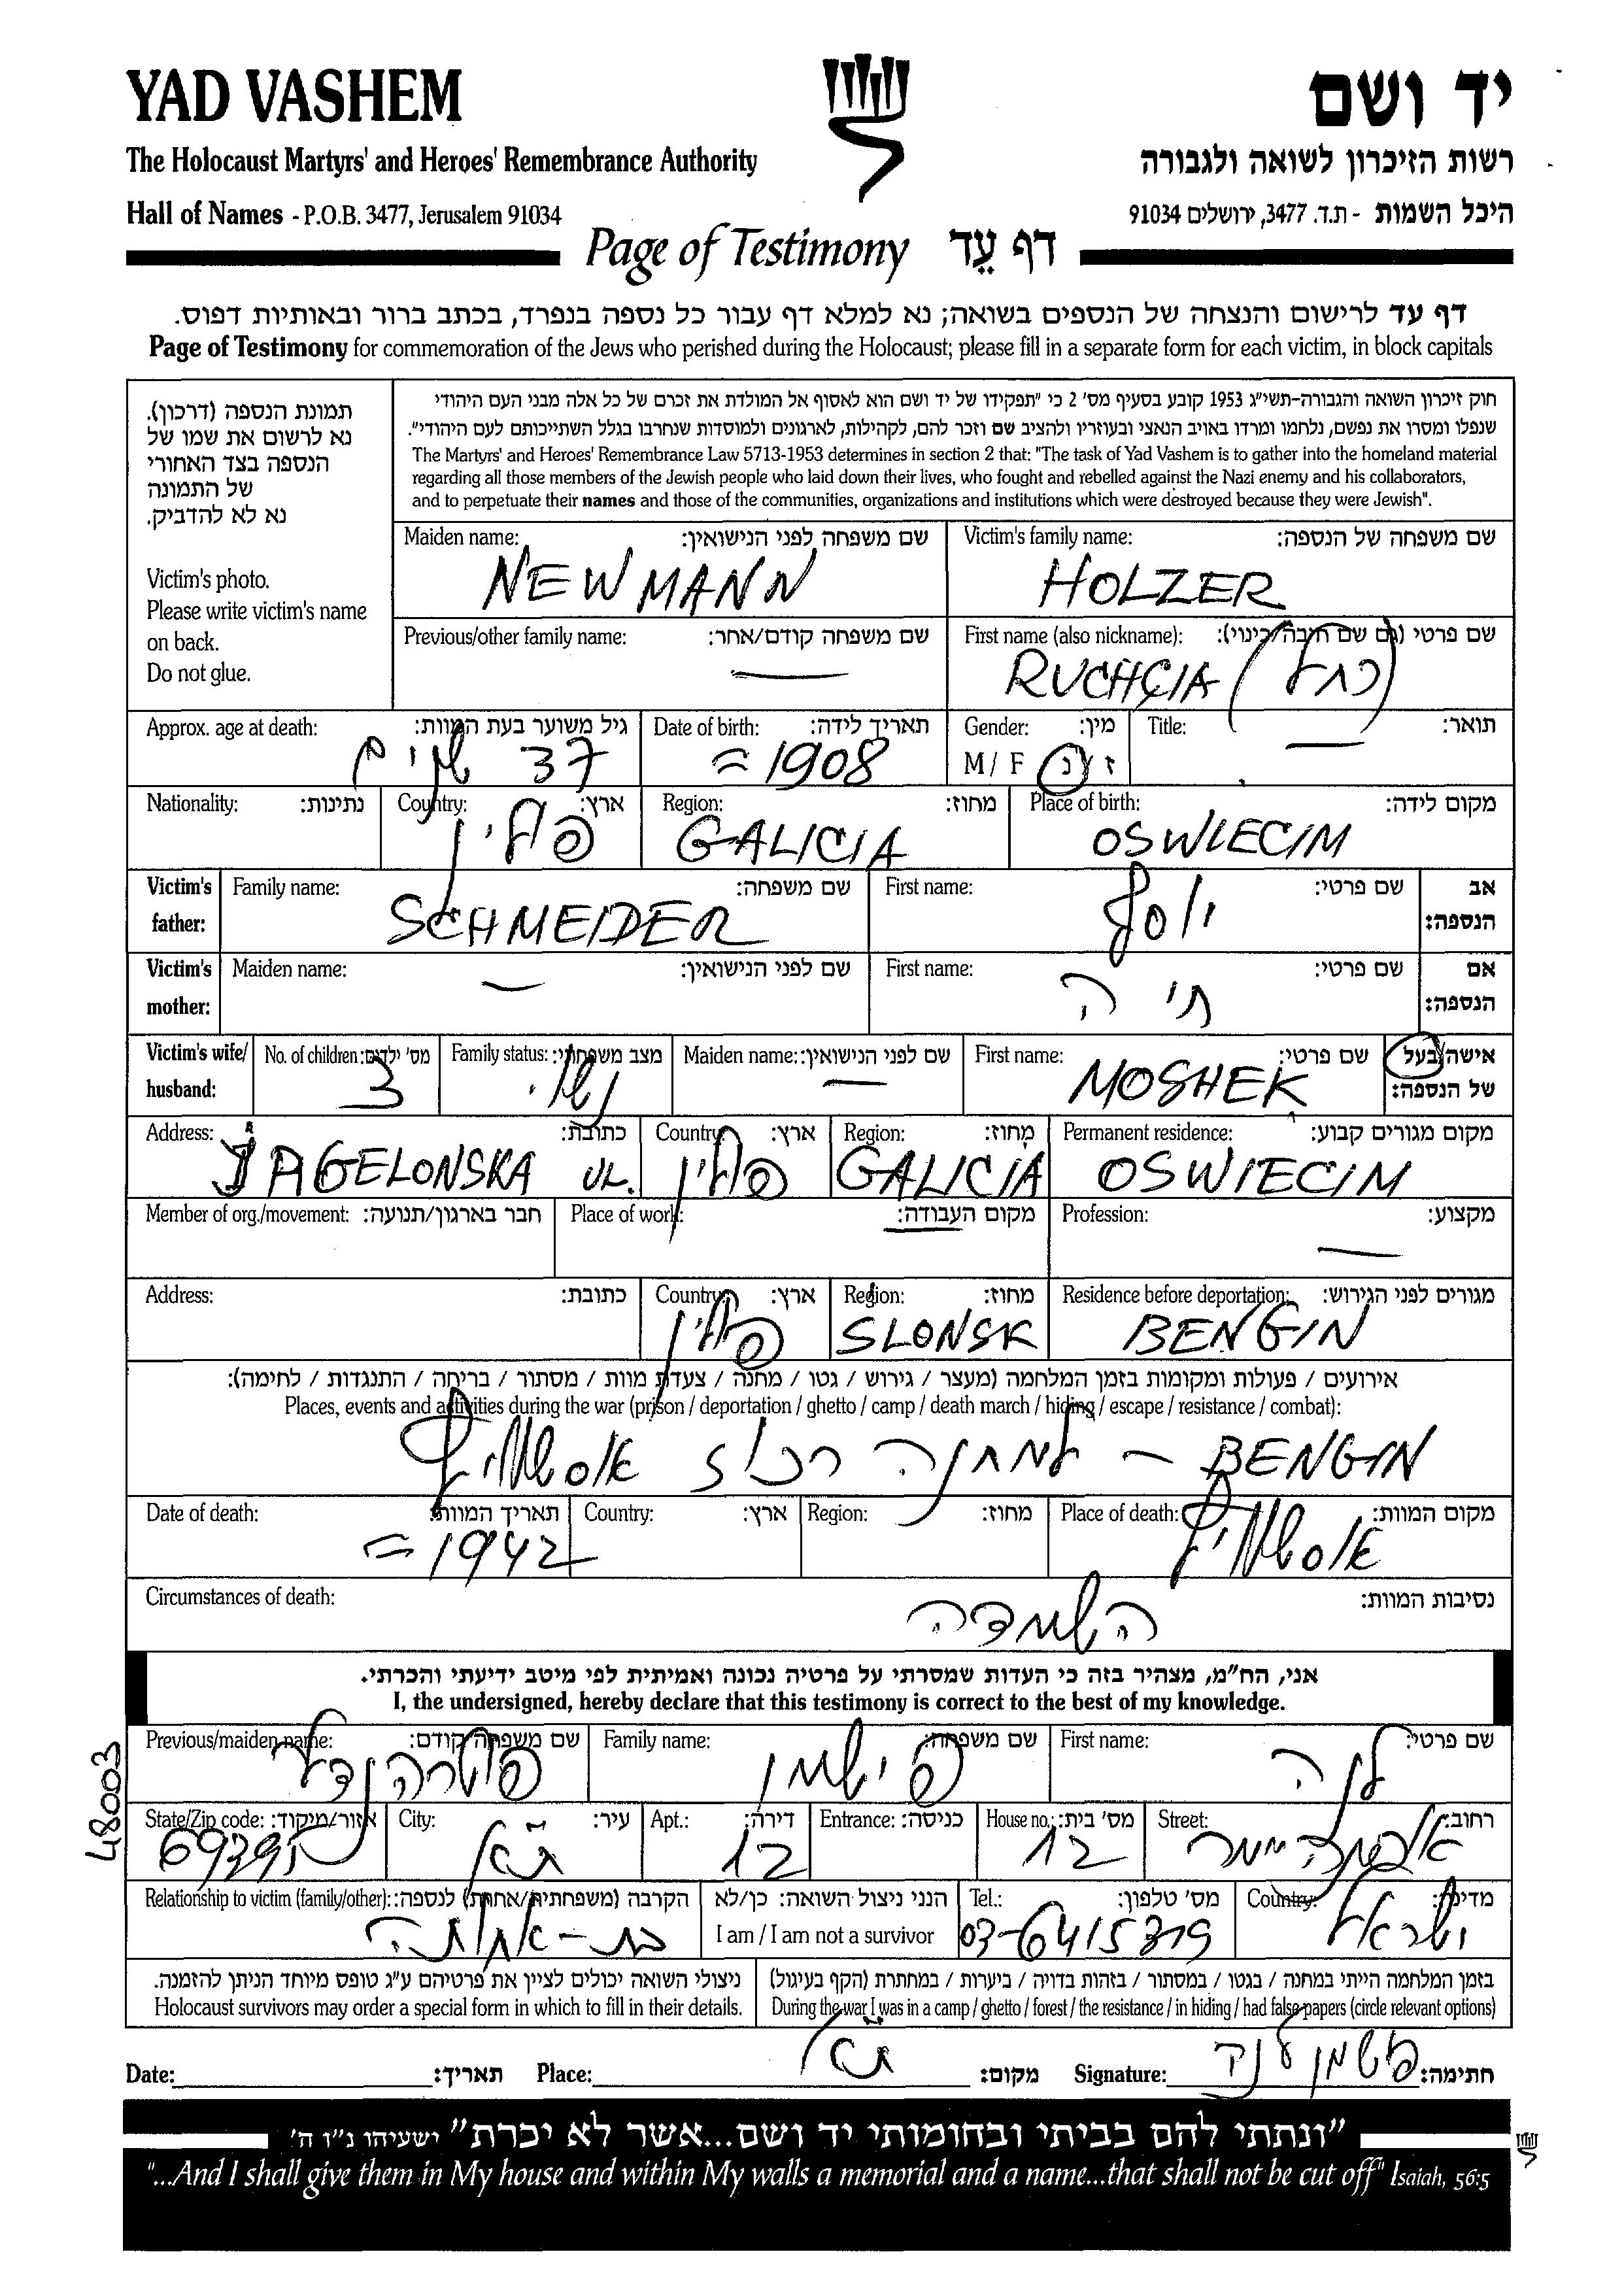 YAD VASHEM
יד ושם
The Holocaust Martyrs' and Heroes' Remembrance Authority
רשות הזיכרון לשואה ולגבורה
Hall of Names - P.O.B. 3477, Jerusalem 91034
היכל השמות - ת.ד. 3477, ירושלים 91034
Page of Testimony דף עֵד
דף עד לרישום והנצחה של הנספים בשואה; נא למלא דף עבור כל נספה בנפרד, בכתב ברור ובאותיות דפוס.
Page of Testimony for commemoration of the Jews who perished during the Holocaust; please fill in a separate form for each victim, in block capitals
תמונת הנספה (דרכון).
נא לרשום את שמו של
הנספה בצד האחורי
של התמונה
נא לא להדביק.
Victim's photo.
Please write victim's name
on back.
Do not glue.
חוק זיכרון השואה והגבורה-תשי״ג 1953 קובע בסעיף מס' 2 כי "תפקידו של יד ושם הוא לאסוף אל המולדת את זכרם של כל אלה מבני העם היהודי
שנפלו ומסרו את נפשם, נלחמו ומרדו באויב הנאצי ובעוזריו ולהציב שם וזכר להם, לקהילות, לארגונים ולמוסדות שנחרבו בגלל השתייכותם לעם היהודי".
The Martyrs' and Heroes' Remembrance Law 5713-1953 determines in section 2 that: "The task of Yad Vashem is to gather into the homeland material
regarding all those members of the Jewish people who laid down their lives, who fought and rebelled against the Nazi enemy and his collaborators,
and to perpetuate their names and those of the communities, organizations and institutions which were destroyed because they were Jewish".
Maiden name: שם משפחה לפני הנישואין: Victim's family name: שם משפחה של הנספה:
NEWMANN HOLZER
Previous/other family name: שם משפחה קודם/אחר: First name (also nickname): שם פרטי (גם שם חיבה/כינוי):
— RUCHCIA (רחל)
Approx. age at death: גיל משוער בעת המוות: Date of birth: תאריך לידה: Gender: מין: Title: תואר:
37 שנים ≈ 1908 M / F ז / נ —
Nationality: נתינות: Country: ארץ: Region: מחוז: Place of birth: מקום לידה:
פולין GALICIA OSWIECIM
Victim's father: Family name: שם משפחה: First name: שם פרטי: אב הנספה:
SCHMEIDER יוסף
Victim's mother: Maiden name: שם לפני הנישואין: First name: שם פרטי: אם הנספה:
— חיה
Victim's wife/ husband: No. of children: מס' ילדים: Family status: מצב משפחתי: Maiden name: שם לפני הנישואין: First name: שם פרטי: אישה/בעל של הנספה:
3 נשוי — MOSHEK
Address: כתובת: Country: ארץ: Region: מחוז: Permanent residence: מקום מגורים קבוע:
JAGELONSKA UL. פולין GALICIA OSWIECIM
Member of org./movement: חבר בארגון/תנועה: Place of work: מקום העבודה: Profession: מקצוע:
—
Address: כתובת: Country: ארץ: Region: מחוז: Residence before deportation: מגורים לפני הגירוש:
פולין SLONSK BENGIN
אירועים / פעולות ומקומות בזמן המלחמה (מעצר / גירוש / גטו / מחנה / צעדת מוות / מסתור / בריחה / התנגדות / לחימה):
Places, events and activities during the war (prison / deportation / ghetto / camp / death march / hiding / escape / resistance / combat):
BENGIN – למחנה רכוז אושוויץ
Date of death: תאריך המוות: Country: ארץ: Region: מחוז: Place of death: מקום המוות:
≈ 1942 אושוויץ
Circumstances of death: נסיבות המוות:
השמדה
אני, הח״מ, מצהיר בזה כי העדות שמסרתי על פרטיה נכונה ואמיתית לפי מיטב ידיעתי והכרתי.
I, the undersigned, hereby declare that this testimony is correct to the best of my knowledge.
Previous/maiden name: שם משפחה קודם: Family name: שם משפחה: First name: שם פרטי:
פישמן לנה
48003
State/Zip code: אזור/מיקוד: City: עיר: Apt.: דירה: Entrance: כניסה: House no.: מס' בית: Street: רחוב:
ת״א 12 12
Relationship to victim (family/other): הקרבה (משפחתית/אחרת) לנספה: הנני ניצול השואה: כן/לא Tel.: מס' טלפון: Country: מדינה:
בת-אחותה I am / I am not a survivor 03-6415319 ישראל
ניצולי השואה יכולים לציין את פרטיהם ע״ג טופס מיוחד הניתן להזמנה.
Holocaust survivors may order a special form in which to fill in their details.
בזמן המלחמה הייתי במחנה / בגטו / במסתור / בזהות בדויה / ביערות / במחתרת (הקף בעיגול)
During the war I was in a camp / ghetto / forest / the resistance / in hiding / had false papers (circle relevant options)
Date: תאריך: Place: ת״א מקום: Signature: פישמן לנה חתימה:
"ונתתי להם בביתי ובחומותי יד ושם...אשר לא יכרת" ישעיהו נ״ו ה'
"...And I shall give them in My house and within My walls a memorial and a name...that shall not be cut off" Isaiah, 56:5